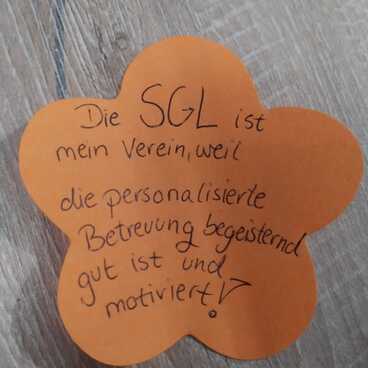 Die SGL ist
mein Verein, weil
die personalisierte
Betreuung begeisternd
gut ist und
motiviert!